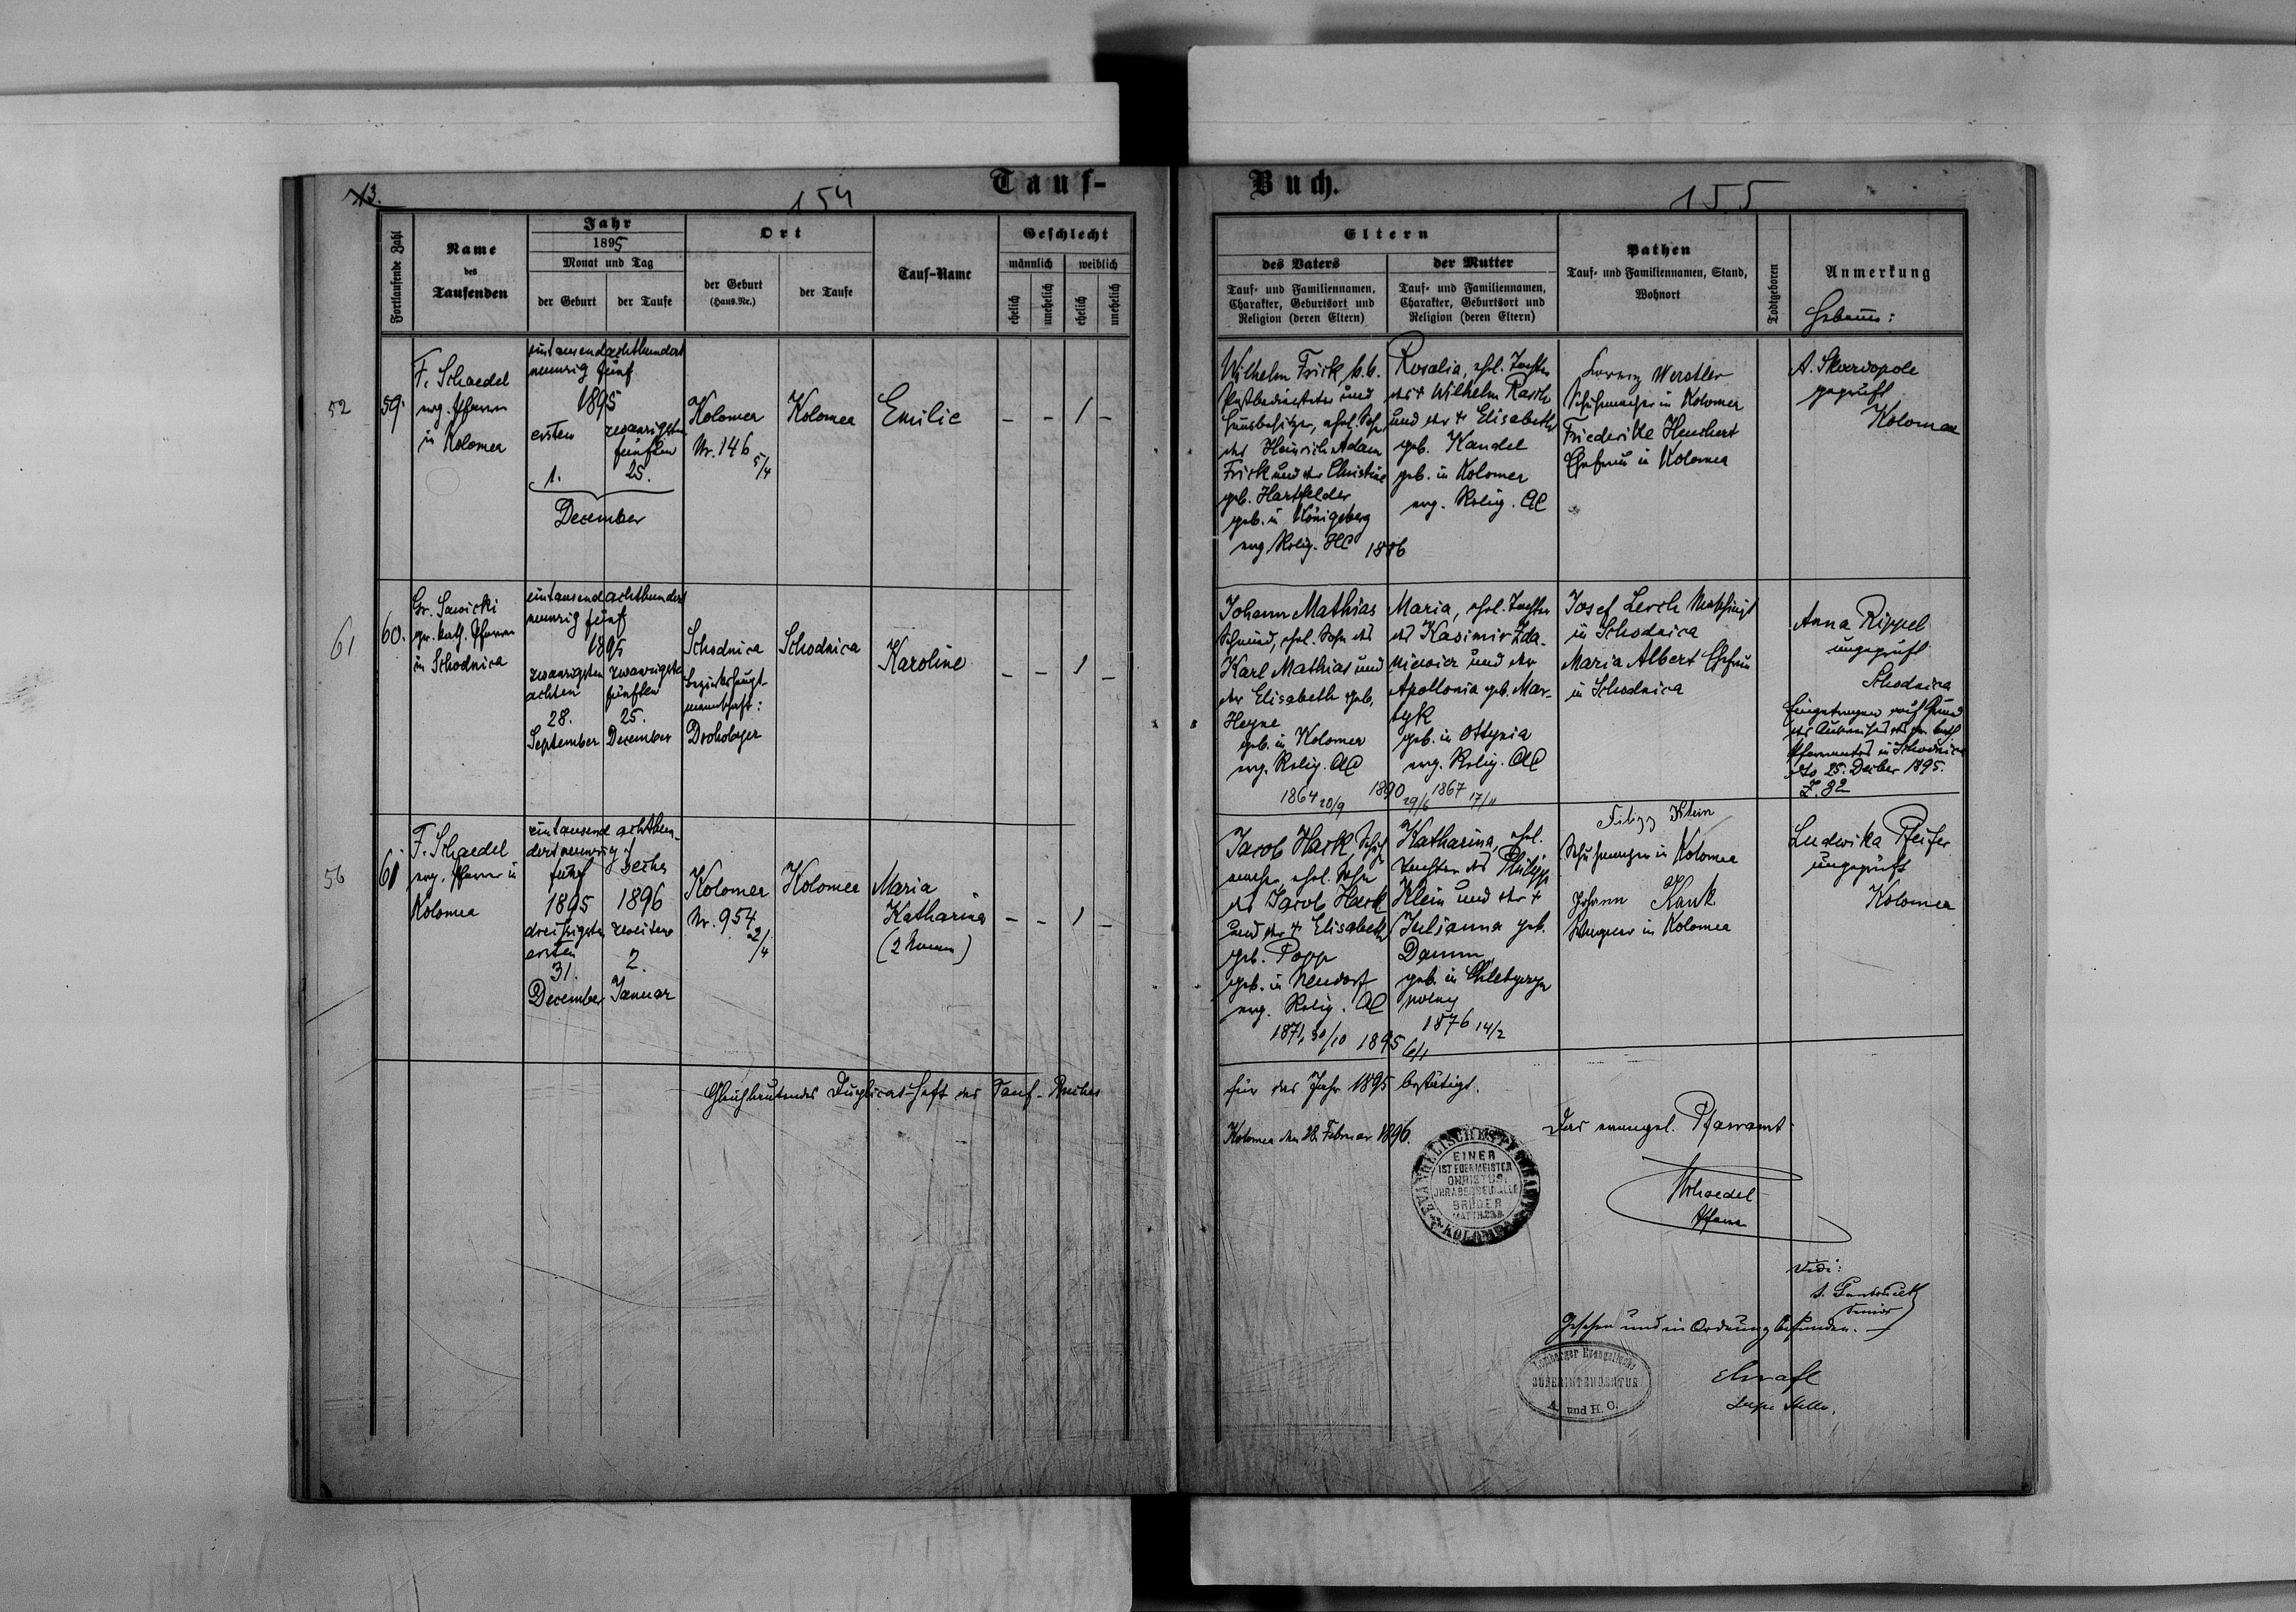 13.
154
Tauf-
Fortlaufende Zahl
Name
des
Taufenden
Jahr
1895
Monat und Tag
der Geburt
der Taufe
Ort
der Geburt
(Haus-Nr.)
der Taufe
Tauf-Name
Geschlecht
männlich
weiblich
ehelich
unehelich
ehelich
unehelich
52
59.
F. Schaedel
evg. Pfarrer
in Kolomea
eintausendachthundert
neunzig fünf
1895
ersten
zwanzigsten
fünften
1.
25.
December
Kolomea
Nr. 146
5/4
Kolomea
Emilie
- - 1 -
61
60.
Gr. Sawicki
gr. kath. Pfarrer
in Schodnica
eintausendachthundert
neunzig fünf
1895
zwanzigsten
achten
28.
September
zwanzigsten
fünften
25.
December
Schodnica
Bezirkshaupt-
mannschaft:
Drohobycz
Schodnica
Karoline
- - 1 -
56
61
F. Schaedel
evg. Pfarrer in
Kolomea
eintausend achthun-
dert neunzig
fünf
1895
dreißigsten
ersten
31.
December
sechs
1896
zweiten
2.
Januar
Kolomea
Nr. 954
2/4
Kolomea
Maria
Katharina
(2 Namen)
- - 1 -
Gleichlautendes Duplicat-Heft des Tauf-Buches
Buch.
155
Eltern
des Vaters
Tauf- und Familiennamen,
Charakter, Geburtsort und
Religion (deren Eltern)
der Mutter
Tauf- und Familiennamen,
Charakter, Geburtsort und
Religion (deren Eltern)
Pathen
Tauf- und Familiennamen, Stand,
Wohnort
Todtgeboren
Anmerkung
Hebamme:
Wilhelm Frick, k.k.
Postbediensteter und
Hausbesitzer, ehel. Sohn
des Heinrich Adam
Frick und der Christine
geb. Hartfelder
geb. in Königsberg
evg. Relig. HC
1886
Rosalia, ehel. Tochter
des + Wilhelm Rasch
und der + Elisabeth
geb. Kandel
geb. in Kolomea
evg. Relig. AC
Lorenz Werstler
Schuhmacher in Kolomea
Friederike Henchert
Ehefrau in Kolomea
A. Skwordpole
geprüft
Kolomea
Johann Mathias
Schmied, ehel. Sohn des
Karl Mathias und
der Elisabeth geb.
Heyne
geb. in Kolomea
evg. Relig. AC
1864 20/9
1890 29/6
Maria, ehel. Tochter
des Kasimir Zda-
niewicz und der
Apollonia geb. Mar-
tyk
geb. in Ottynia
evg. Relig. AC
1867 17/11
Josef Lerch Maschinist
in Schodnica
Maria Albert Ehefrau
in Schodnica
Anna Rippel
ungeprüft
Schodnica
Eingetragen auf Grund
des Ausweises des gr. kath
Pfarramtes in Schodnica
dto 25. Decber 1895.
Z. 82
Jacob Hark, Schuh-
macher, ehel. Sohn
des Jacob Hark
und der + Elisabeth
geb. Popp
geb. in Neudorf
evg. Relig. AC
1871, 30/10
1895
Katharina, ehel.
Tochter des Philipp
Klein und der +
Julianna geb.
Damm,
geb. in Chlebyczyn
polny
1876 14/2
Filipp Klein
Schuhmacher in Kolomea
Johann Kank
Wagner in Kolomea
Ludwika Pfeifer
ungeprüft
Kolomea
für das Jahr 1895 bestätigt.
Kolomea den 28. Februar 1896.
Das evangel. Pfarramt
EVANGELISCHES PFARRAMT
KOLOMEA
EINER
IST EUER MEISTER
CHRISTUS,
IHR ABER SEID ALLE
BRÜDER
MATTH. 23.8.
Schaedel
Pfarrer
Vidi:
Senior
Gesehen und in Ordnung befunden.
Lemberger Evangelische
SUPERINTENDENTUR
A. und H. C.